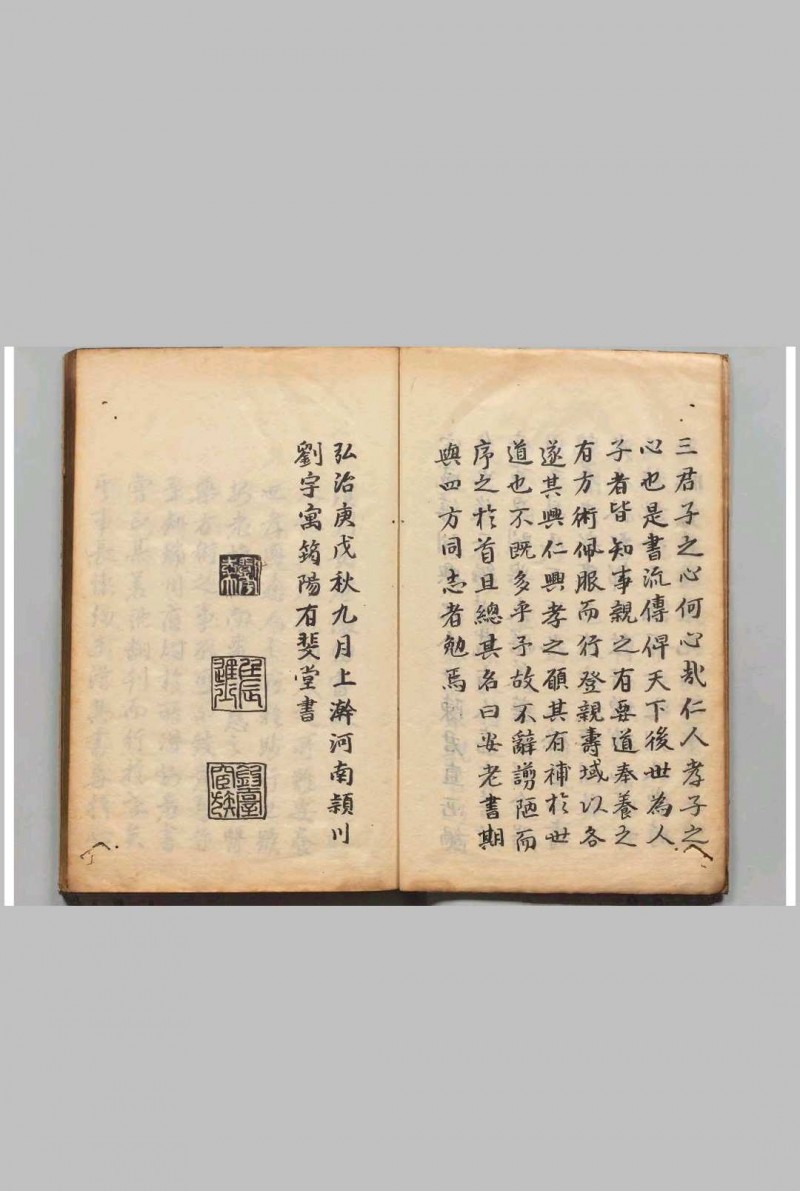 三君子之心何心哉仁人孝子之
心也是書流傳俾天下後世為人
子者皆知事親之有要道奉養之
有方術佩服而行登親壽域以各
遂其興仁興孝之願其有補於世
道也不既多乎予故不辭謭陋而
序之於首且總其名曰安老書期
與四方同志者勉焉
弘治庚戌秋九月上澣河南頴川
劉宇寓筠陽有斐堂書
壬辰進士